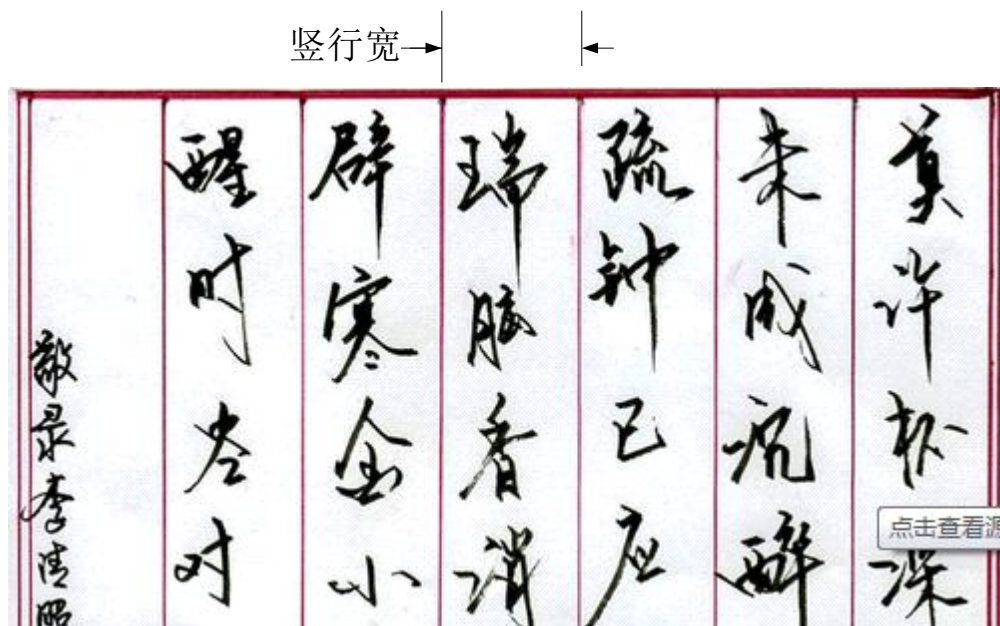 竖行宽
莫许杯深
未成沉醉
疏钟已应
瑞脑香消
辟寒金小
醒时空对
敬录李清照
点击查看源